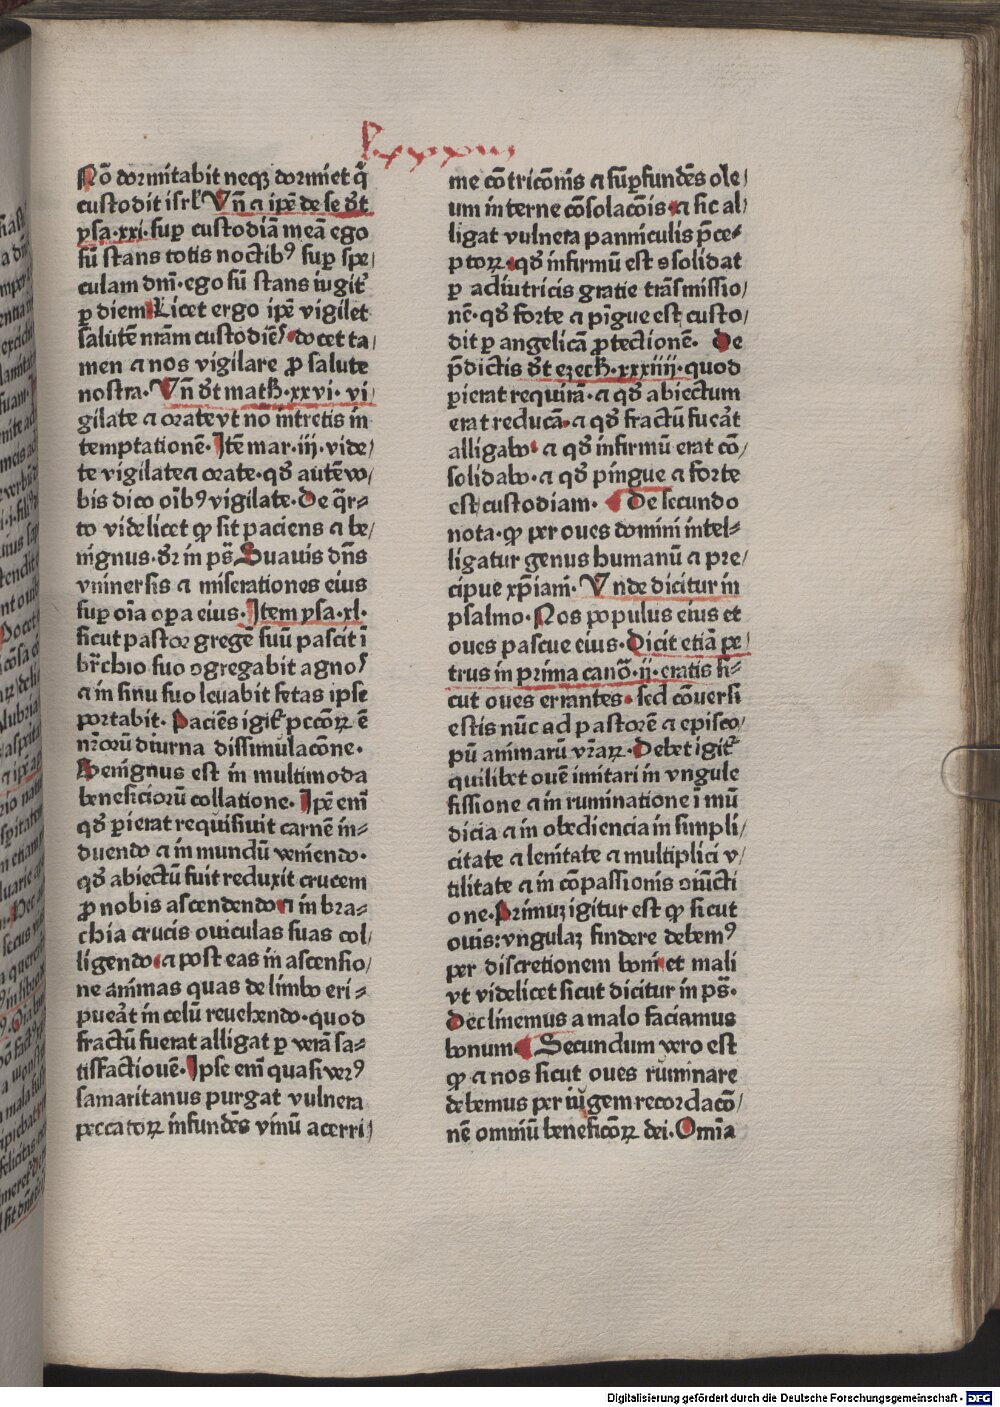 lxxxiii
No dormitabit neqȝ dormiet q̄
custodit isrl̓ Vn̄ ⁊ ip̄e de se dr̄t
ysa·xxi·sup̱ custodiā meā ego
sū stans totis noctibꝰ sup̱ spe/
culam dm̄·ego sū stans iugit̓
ꝑ diem Licet ergo ip̄e vigilet
salutē nr̄am custodiēs·docet ta/
men ⁊ nos vigilare ꝓ salute
nostra·Vn̄ dr̄t math̄·xxvi·vi
gilate ⁊ orate vt no intretis in
temptationē·Itē mar·iii·vide/
te vigilate⁊ orate·qd̓ autē vo/
bis dico oīb⁹ vigilate·De q̄r⸗
to videlicet ꝙ sit paciens ⁊ be/
nignus·dr̄ in ps̄ Suauis dn̄s
vniuersis ⁊ miserationes eius
sup̱ oīa opa eius·Item ysa·xl·
sicut pastor gregē suū pascit ī
br̄chio suo ɔgregabit agnos
⁊ in sinu suo leuabit fetas ipse
portabit·Paciēs igit̓ pccōꝝ ē
nr̄orū diurna dissimulacōne·
Benignus est in multimoda
beneficiorū collatione·Ip̄e eni
qd̓ ꝑierat requisiuit carnē in⸗
duendo ⁊ in mundū veniendo·
qd̓ abiectū fuit reduxit crucem
ꝓ nobis ascendendo ⁊ in bra⸗
chia crucis ouiculas suas col/
ligendo ⁊ post eas in ascensio/
ne animas quas de limbo eri⸗
pueāt in celū reuehendo·quod
fractū fuerat alligat ꝑ verā sa⸗
tisfactiouē·Ipse eni quasi verꝰ
samaritanus purgat vulnera
peccatoꝝ infundēs vinū acerri/
me cōtricōnis ⁊ sup̱fundēs ole/
um interne cōsolacōis·⁊ sic al/
ligat vulnera panniculis p̄ce⸗
ptoꝝ·qd̓ infirmū est ɔsolidat
ꝑ adiutricis gratie trāsmissio/
nē·qd̓ forte ⁊ pīgue est custo/
dit ꝑ angelicā ꝓtectionē· De
p̄dictis dr̄t ezech̄·xxxiiii·quod
ꝑierat requirā·⁊ qd̓ abiectum
erat reducā·⁊ qd̓ fractū fueāt
alligabo·⁊ qd̓ infirmū erat cō/
solidabo·⁊ qd̓ pingue ⁊ forte
est custodiam· De secundo
nota·ꝙ per oues domini intel⸗
ligatur genus humanū ⁊ pre/
cipue xp̄iani·Vnde dicitur in
psalmo·Nos populus eius et
oues pascue eius·Dicit etiā pe/
trus in prima canō·ii·eratis si⸗
cut oues errantes·sed cōuersi
estis nūc ad pastorē ⁊ episco/
pū animarū vr̄aꝝ·Debet igit̓
quilibet ouē imitari in vngule
fissione ⁊ in ruminatione ī mū
dicia ⁊ in obediencia in simpli/
citate ⁊ lenitate ⁊ multiplici v/
tilitate ⁊ in cōpassionis ɔiūcti
one·Primuȝ igitur est ꝙ sicut
ouis:vngulaȝ findere debemꝰ
per discretionem boni et mali
vt videlicet sicut dicitur in ps̄·
Declinemus a malo faciamus
bonum Secundum vero est
ꝙ ⁊ nos sicut oues ruminare
debemus per iugem recordacō/
nē omniū beneficōꝝ dei·Omnia
Digitalisierung gefördert durch die Deutsche Forschungsgemeinschaft - DFG